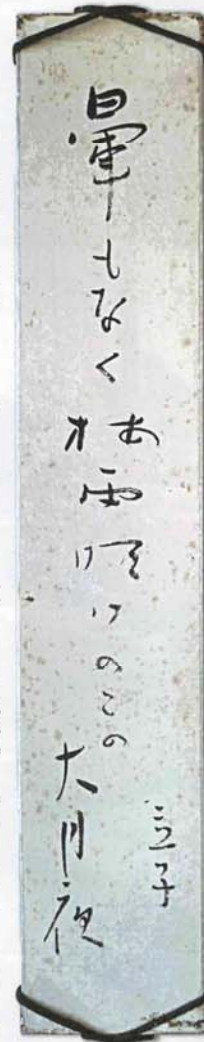 暈もなく梅雨明けのこの大月夜
立子